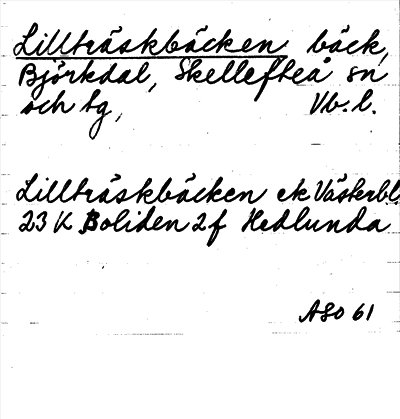 Lillträskbäcken bäck,
Björkdal, Skellefteå sn
och tg, Vb. l.
Lillträskbäcken ek Västerbl.
23 K Boliden 2f Hedlunda
ASO 61